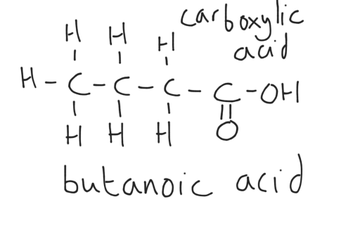 carboxylic
acid
H H H
H - C - C - C - C - OH
H H H O
butanoic acid